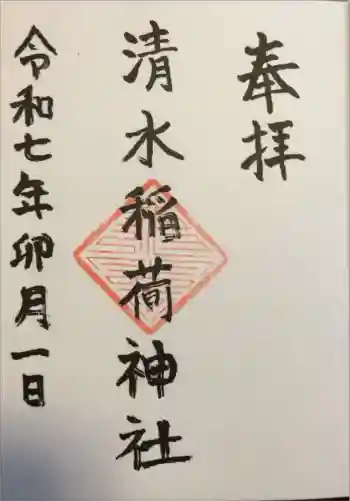 奉拝
清水稲荷神社
令和七年卯月一日